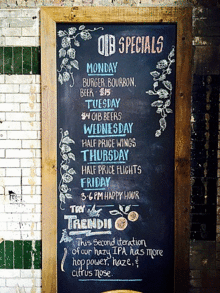 OIB SPECIALS
MONDAY
BURGER, BOURBON,
BEER $15
TUESDAY
$4 OIB BEERS
WEDNESDAY
HALF PRICE WINGS
THURSDAY
HALF PRICE FLIGHTS
FRIDAY
3-6PM HAPPY HOUR
TRY our new
TRENDII
This second iteration
of our hazy IPA has more
hop power, haze, &
citrus nose